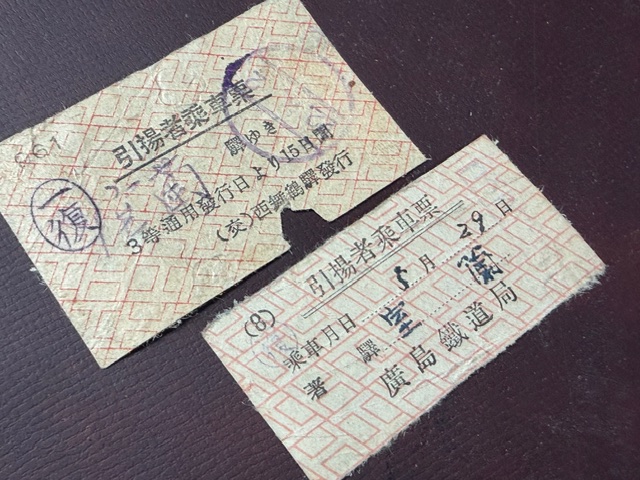 引揚者乘車票
驛ゆき
3等通用發行日より15日間
(交)西舞鶴驛發行
一復
(8)
引揚者乘車票
乘車月日 5月29日
着驛 室蘭
廣島鐵道局